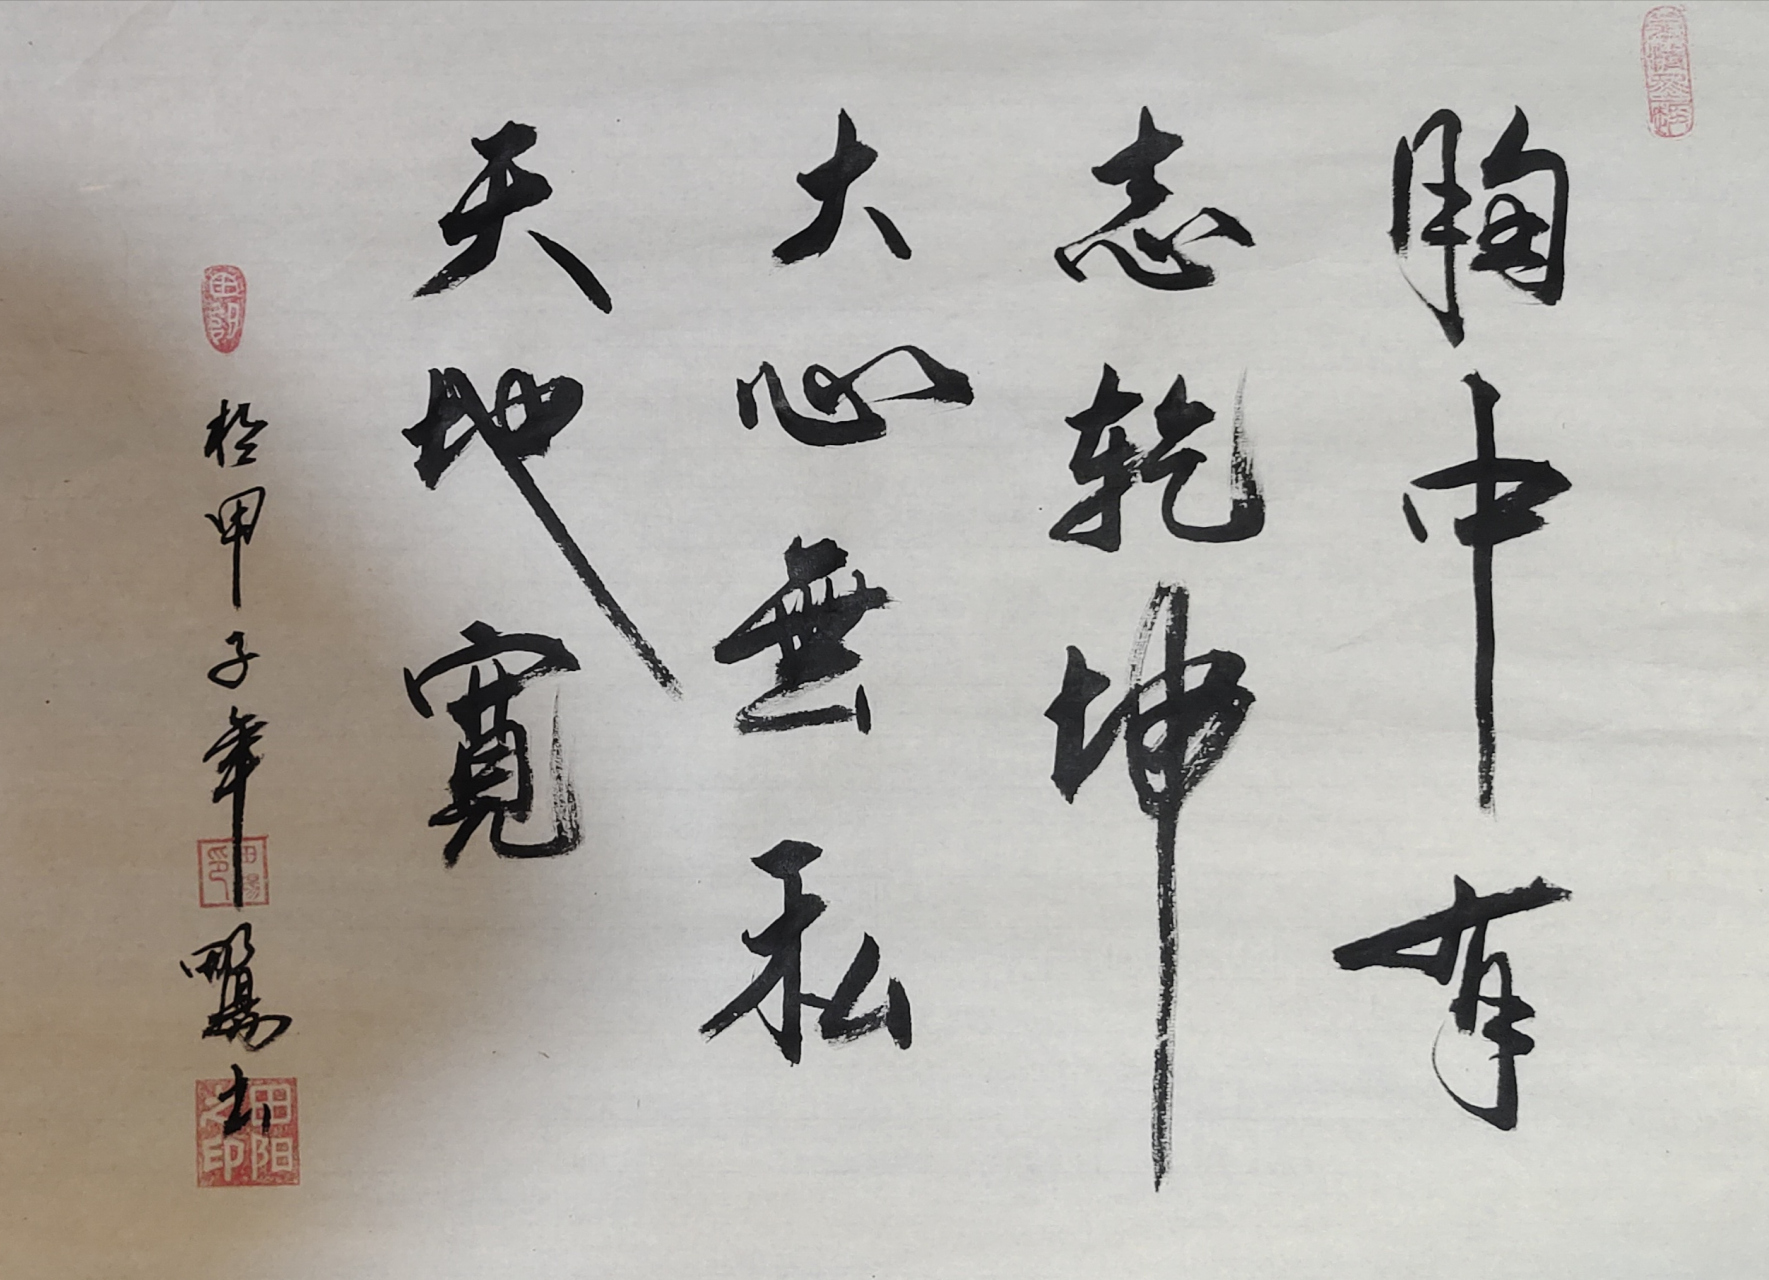 胸中有
志乾坤
大心無私
天地寬
於甲子年
書
田陽之印